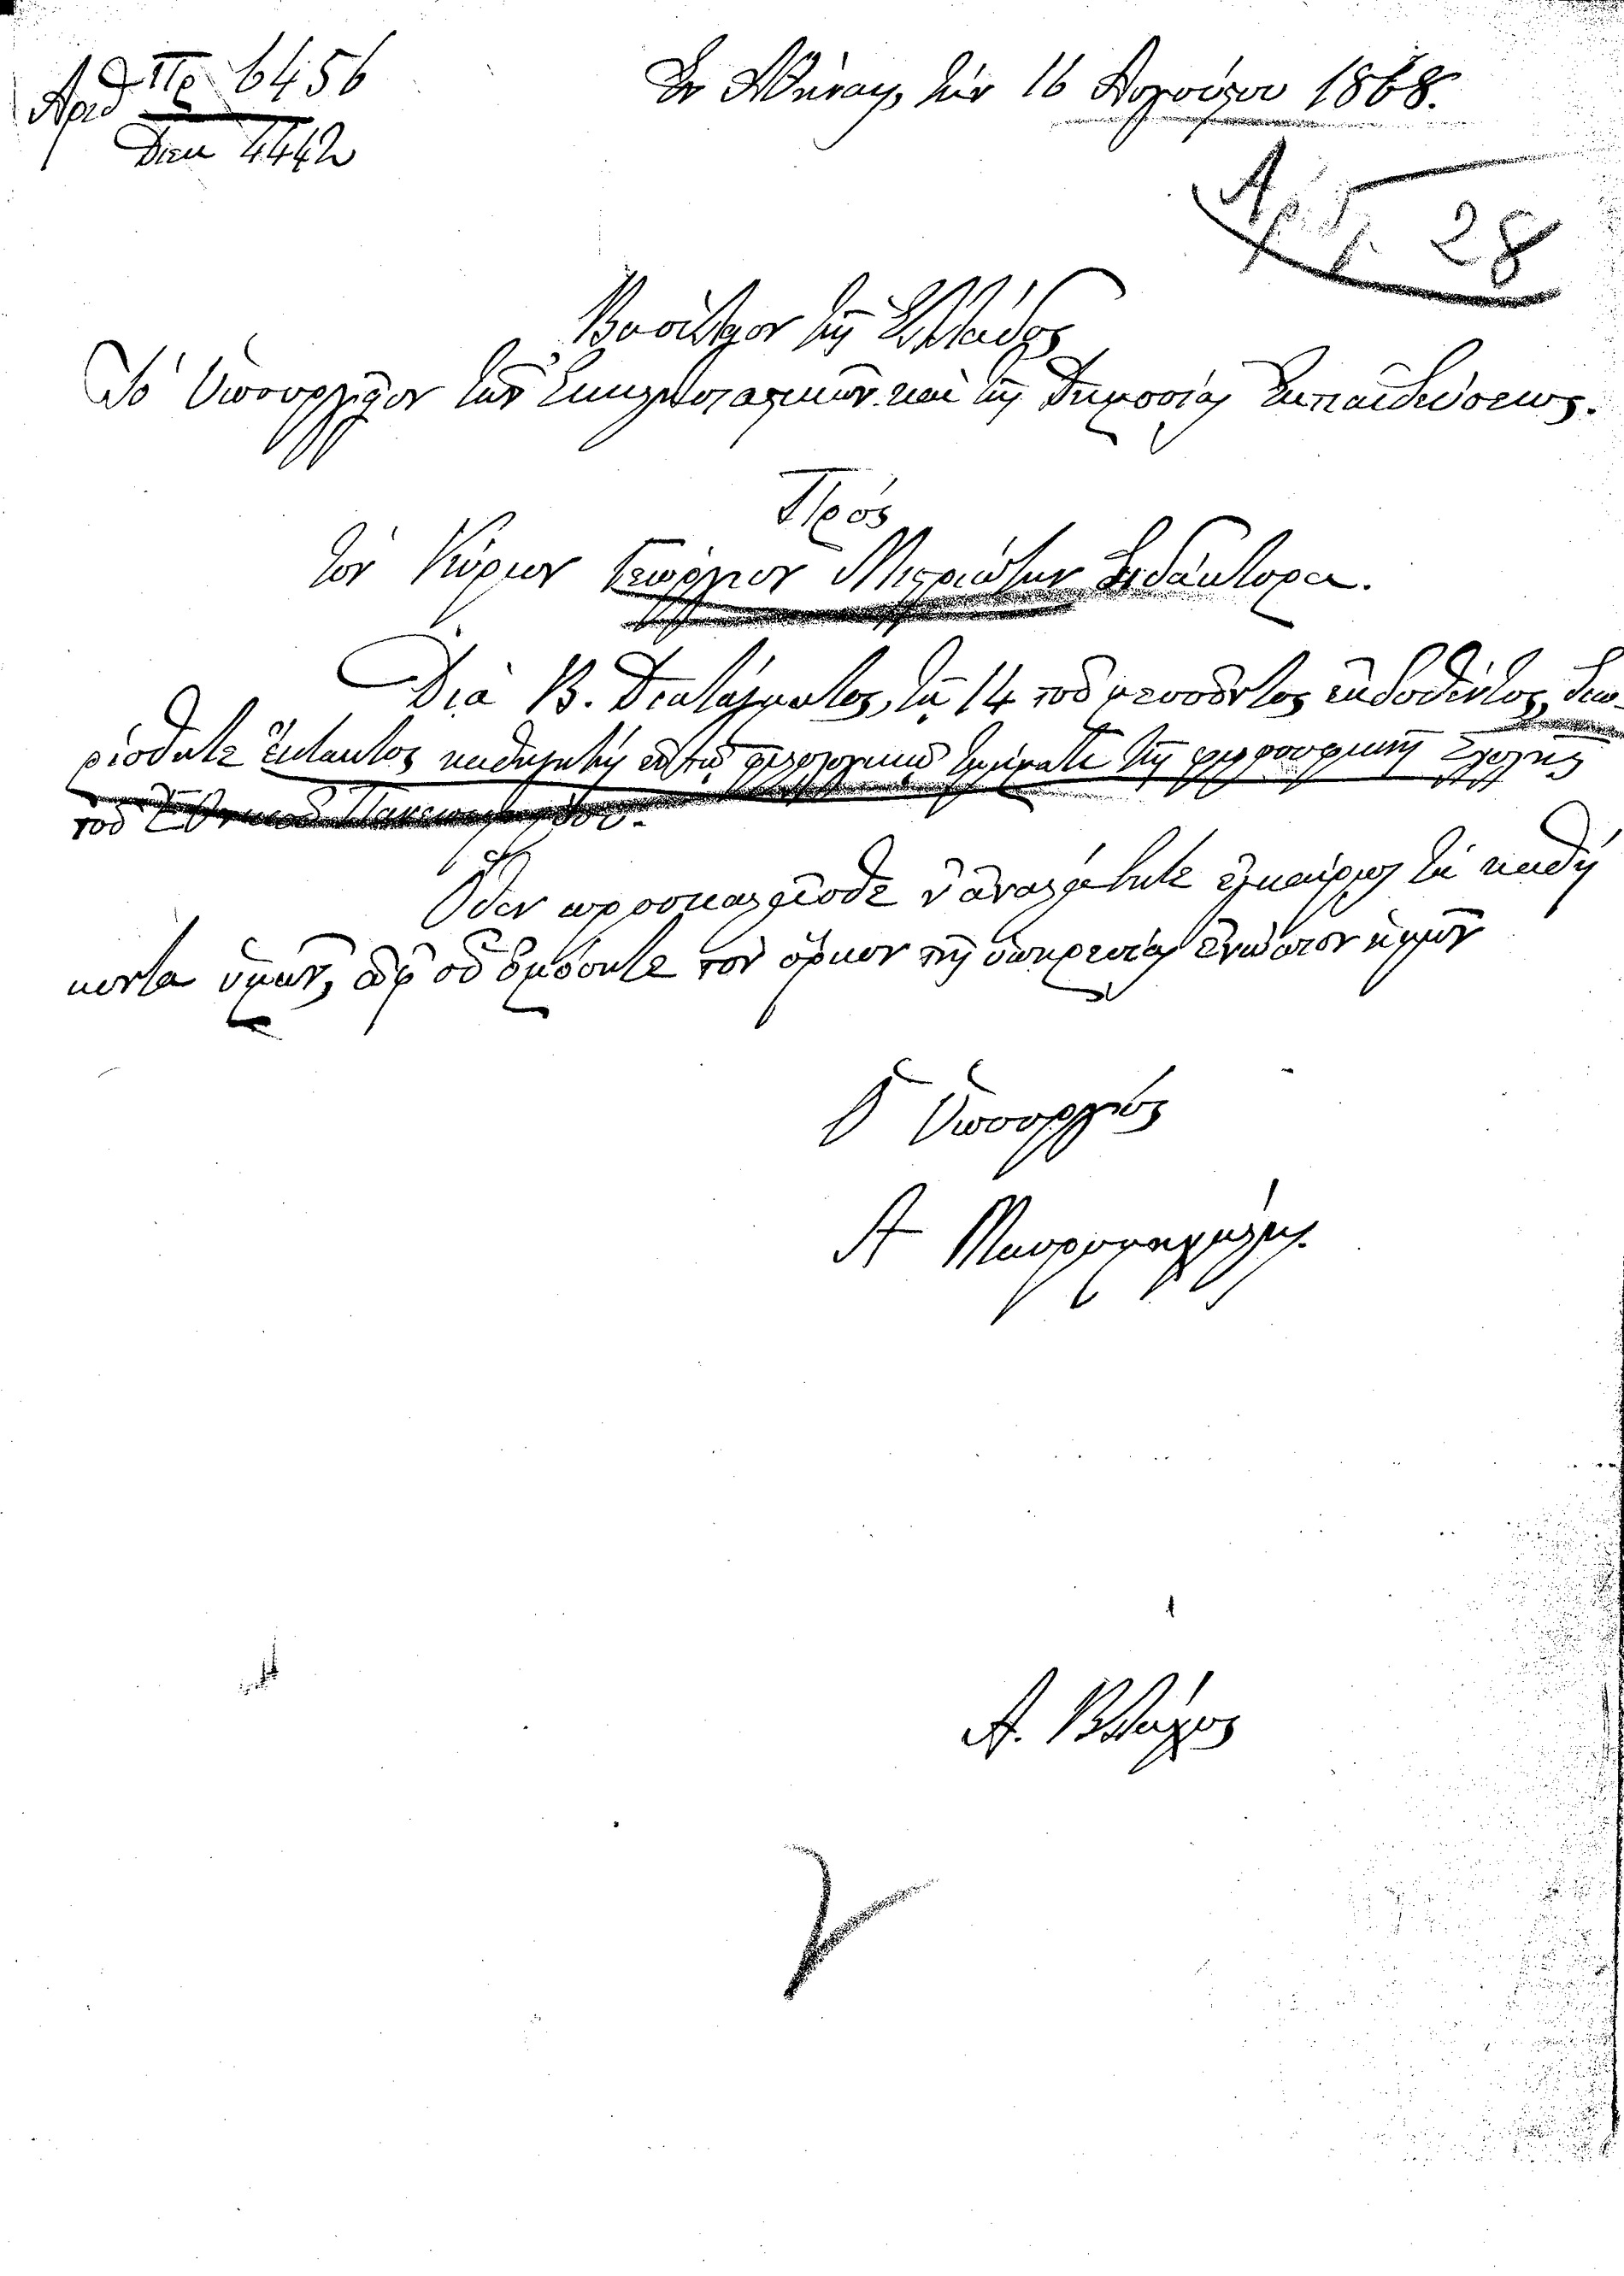 Ἀριθ Πρ 6456
Διεκ 4442
Ἐν Ἀθήναις τὴν 16 Αὐγούστου 1868.
Ἀρ. 28
Βασίλειον τῆς Ἑλλάδος
Τὸ Ὑπουργεῖον τῶν Ἐκκλησιαστικῶν καὶ τῆς Δημοσίας Ἐκπαιδεύσεως.
Πρὸς
τὸν Κύριον Γεώργιον Μιστριώτην Διδάκτορα.
Διὰ Β. Διατάγματος, τῇ 14 τοῦ μεσοῦντος ἐκδοθέντος, διω-
ρίσθητε ἔκτακτος καθηγητὴς ἐν τῷ φιλολογικῷ τμήματι τῆς φιλοσοφικῆς Σχολῆς
τοῦ Ἐθνικοῦ Πανεπιστημίου.
Ὅθεν προσκαλεῖσθε ν' ἀναλάβητε ἐγκαίρως τὰ καθή
κοντα ὑμῶν, ἀφ' οὗ ὀμόσητε τὸν ὅρκον τῆς ὑπηρεσίας ἐνώπιον ἡμῶν
Ὁ Ὑπουργὸς
Α Μαυρομιχάλης.
Α. Βλάχος